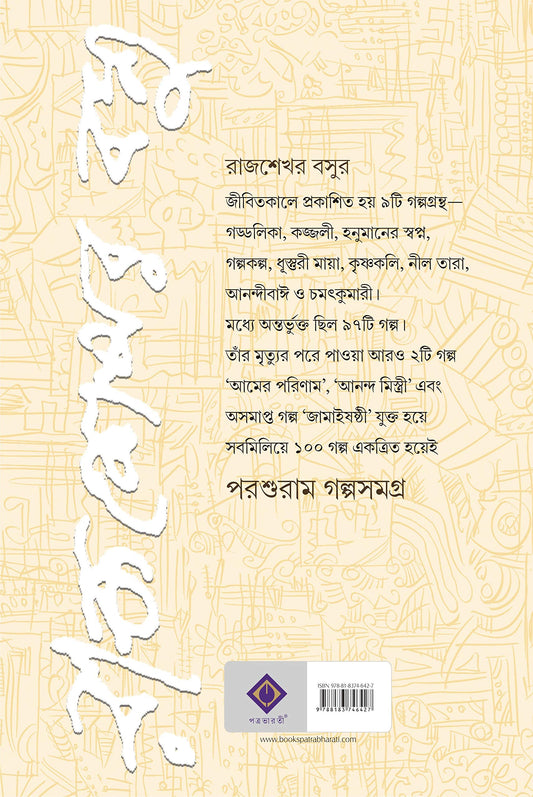 রাজশেখর বসু
রাজশেখর বসুর
জীবিতকালে প্রকাশিত হয় ৯টি গল্পগ্রন্থ—
গড্ডলিকা, কজ্জলী, হনুমানের স্বপ্ন,
গল্পকল্প, ধুস্তুরী মায়া, কৃষ্ণকলি, নীল তারা,
আনন্দীবাঈ ও চমৎকুমারী।
মধ্যে অন্তর্ভুক্ত ছিল ৯৭টি গল্প।
তাঁর মৃত্যুর পরে পাওয়া আরও ২টি গল্প
‘আমের পরিণাম’, ‘আনন্দ মিস্ত্রী’ এবং
অসমাপ্ত গল্প ‘জামাইষষ্ঠী’ যুক্ত হয়ে
সবমিলিয়ে ১০০ গল্প একত্রিত হয়েই
পরশুরাম গল্পসমগ্র
পত্রভারতী®
ISBN 978-81-8374-642-7
9 788183 746427
www.bookspatrabharati.com